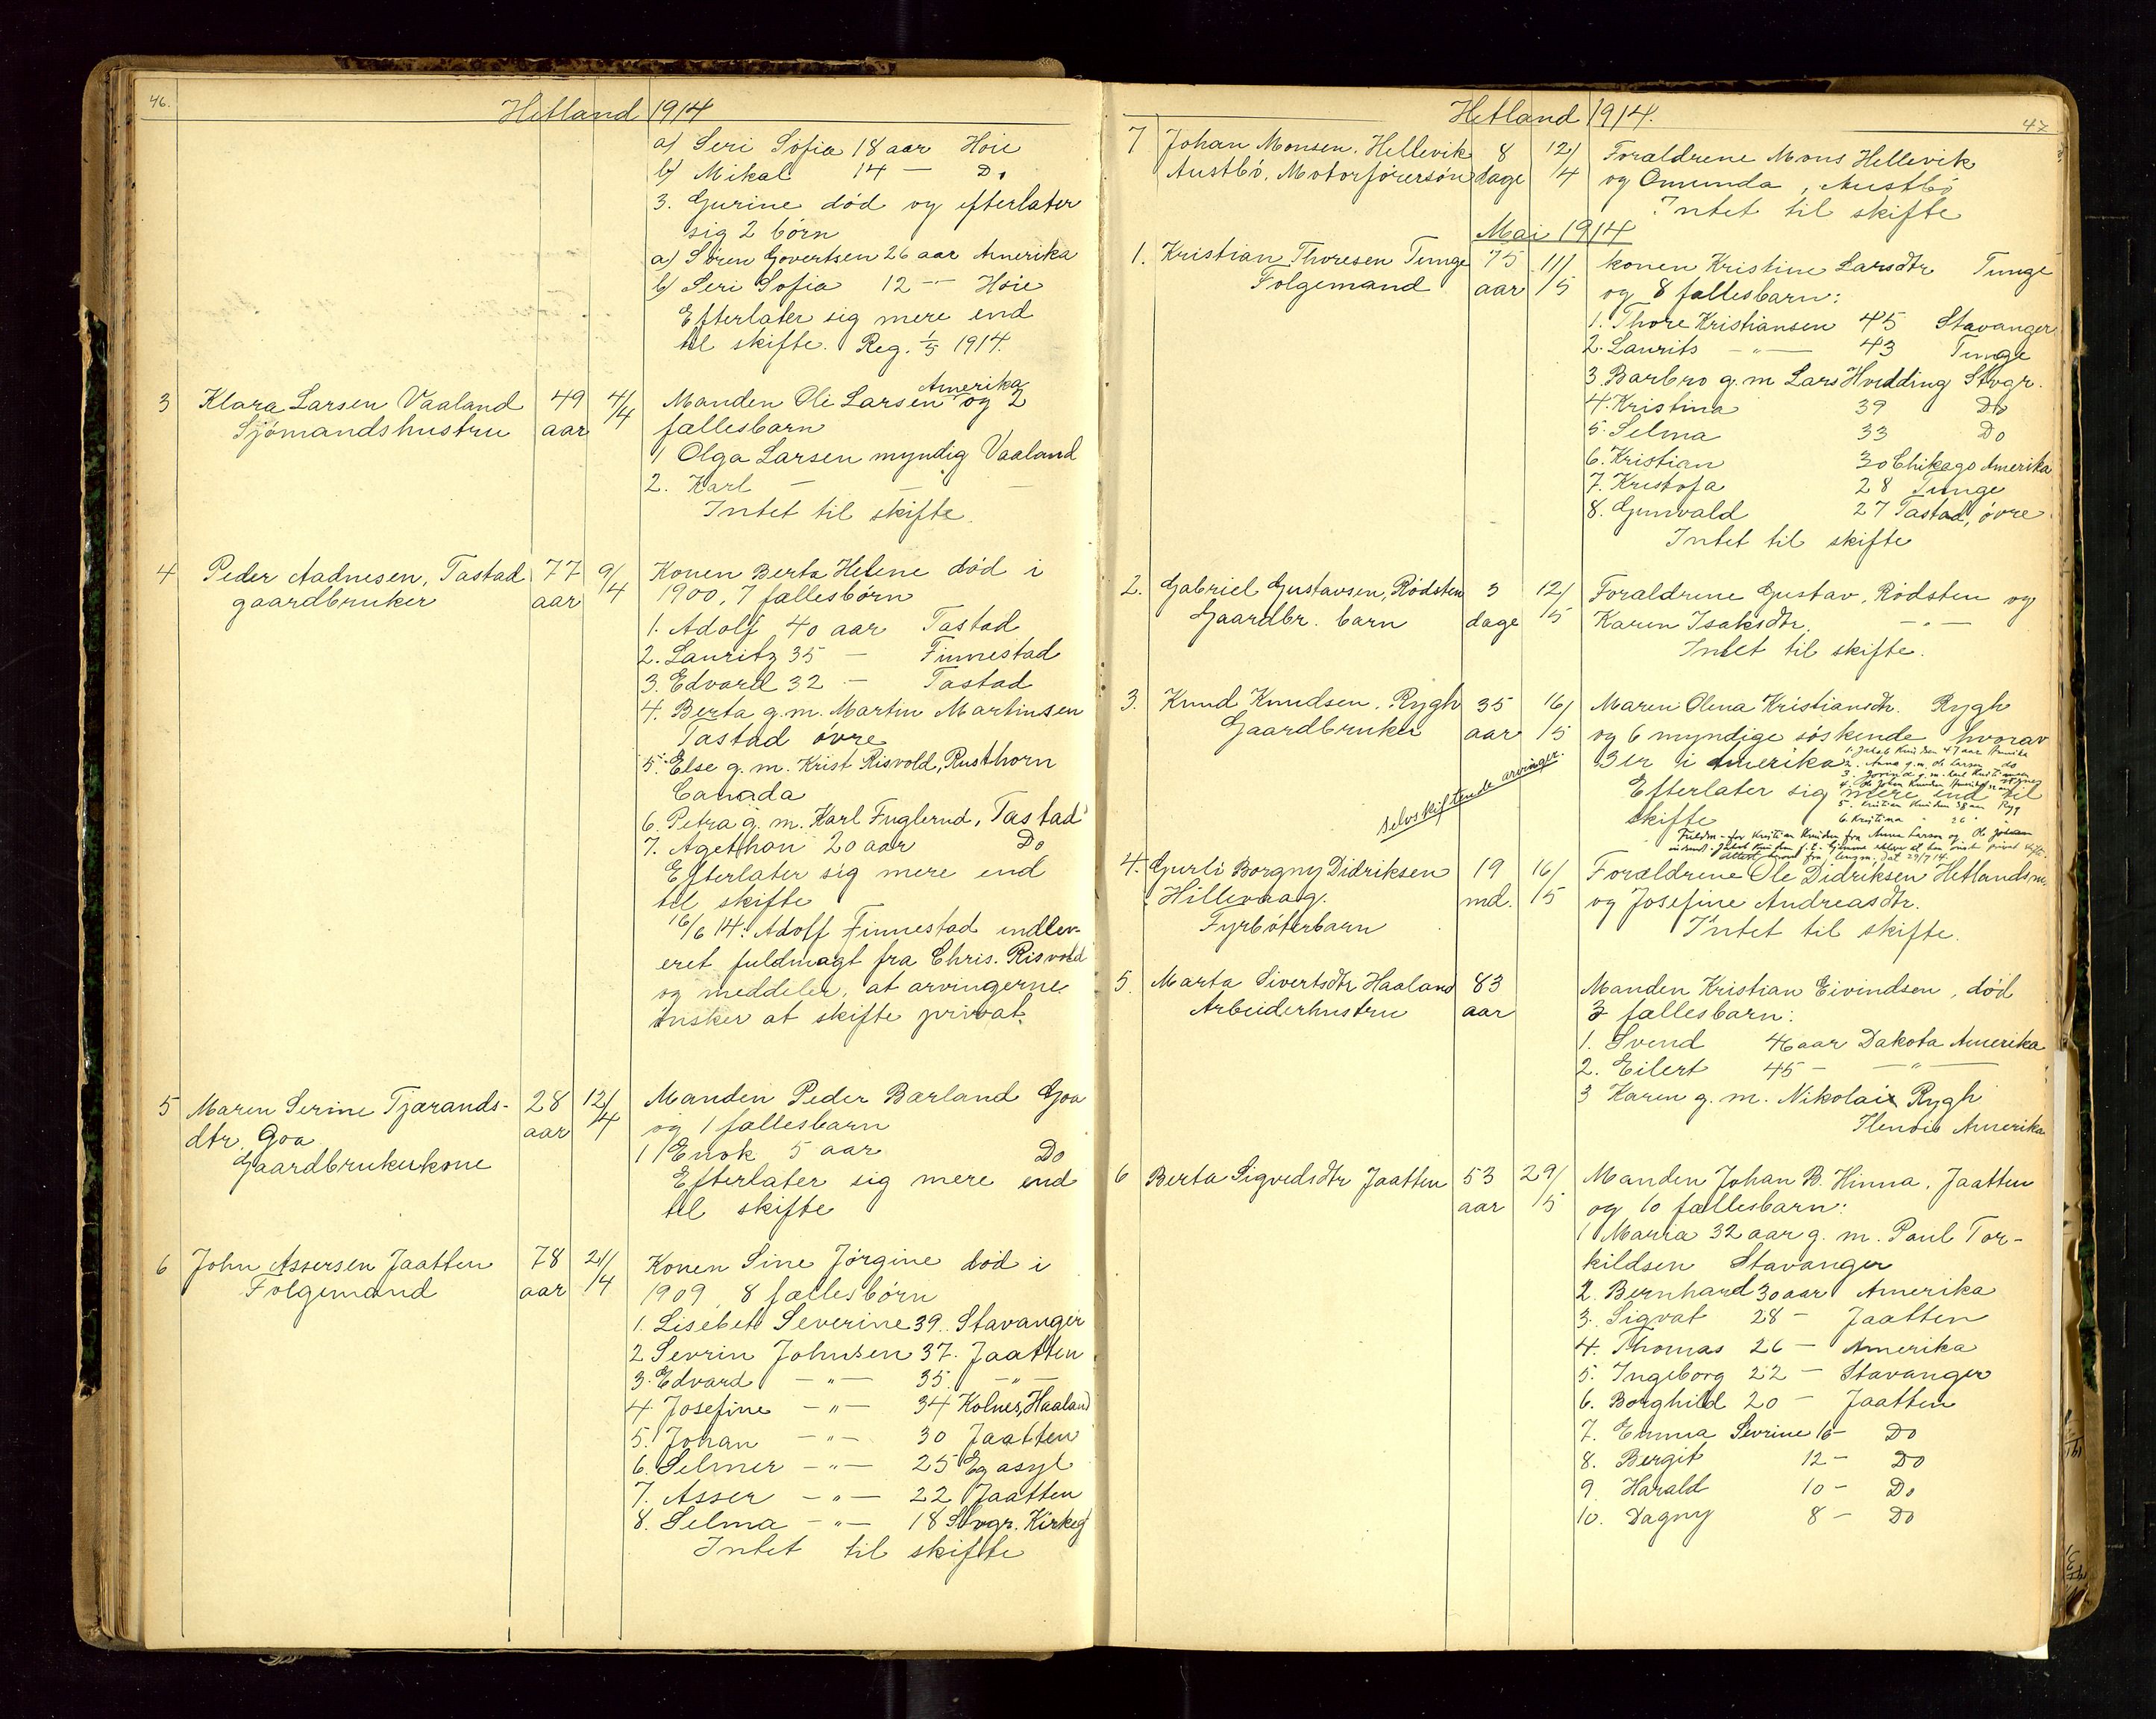 46.
Hetland 1914
a) Seri Sofia 18 aar Høie
b) Mikal 14 — Do
3. Gurine død og efterlater
sig 2 børn
a) Søren Govertsen 26 aar Amerika
b) Seri Sofia 12 — Høie
Efterlater sig mere end
til skifte. Reg. 1/5 1914.
3 Klara Larsen Vaaland 49 4/4 Manden Ole Larsen Amerika og 2
Sjømandshustru aar fællesbarn
1 Olga Larsen myndig Vaaland
2. Karl — — —
Intet til skifte.
4 Peder Aadnesen, Tastad 77 9/4 Konen Berta Helene død i
gaardbruker aar 1900, 7 fællesbørn
1. Adolf 40 aar Tastad
2. Lauritz 35 — Finnestad
3. Edvard 32 — Tastad
4. Berta g.m. Martin Martinsen
Tastad øvre
5. Else g.m. Krist Risvold, Rusthorn
Canada
6. Petra g.m. Karl Fuglerud, Tastad
7. Agethon 20 aar Do
Efterlater sig mere end
til skifte
16/6 14: Adolf Finnestad indlev-
eret fuldmagt fra Chris. Risvold
og meddeler, at arvingerne
ønsker at skifte privat.
5 Maren Serine Tjærands- 28 12/4 Manden Peder Bærland Goa
dtr. Goa aar og 1 fællesbarn
Gaardbrukerkone 1 Enok 5 aar Do
Efterlater sig mere end
til skifte
6 John Assersen Jaatten 78 21/4 Konen Sine Jørgine død i
Folgemand aar 1909, 8 fællesbørn
1. Lisebet Severine 39. Stavanger
2 Sevrin Johnsen 37. Jaatten
3. Edvard — " — 35. — " —
4. Josefine — " — 34 Kolnes, Haaland
5. Johan — " — 30 Jaatten
6. Selmer — " — 25 Egasyl
7. Asser — " — 22 Jaatten
8. Selma — " — 18 Stvgr. Kirkeg
Intet til skifte
Hetland 1914.
47
7 Johan Monsen. Hellevik 8 12/4 Forældrene Mons Hellevik
Austbø, Motorførersøn dage og Omunda, Austbø
Intet til skifte
Mai 1914
1. Kristian Thoresen Tunge 75 11/5 konen Kristine Larsdtr Tunge
Folgemand aar og 8 fællesbarn:
1. Thore Kristiansen 45 Stavanger
2. Laurits — " — 43 Tunge
3. Barbro g.m Lars Hvidding Stvgr.
4. Kristina 39 Do
5. Selma 33 Do
6. Kristian 30 Chikago Amerika
7. Kristofa 28 Tunge
8. Gunvald 27 Tastad, øvre
Intet til skifte
2. Gabriel Gustavsen, Rødsten 3 12/5 Forældrene Gustav, Rødsten og
Gaardbr. barn dage Karen Isaksdtr. — " —
Intet til skifte.
3. Knud Knudsen, Rygh 35 16/5 Maren Olena Kristiansdtr. Rygh
Gaardbruker aar og 6 myndige søskende hvorav
3 er i Amerika
1. Jakob Knudsen 47 aar Amerika
2. Anna g.m. Ole Larsen do
Efterlater sig mere end til
5. Kristian Knudsen 38 aar Ryg
skifte 6 Kristina " 26 "
selvskiftende arvinger.
4. Gurli Borgny Didriksen 19 16/5 Forældrene Ole Didriksen Hetlandsm.
Hillevaag. md. og Josefine Andreasdtr.
Fyrbøterbarn Intet til skifte.
5. Marta Sivertsdtr Haaland 83 Manden Kristian Eivindsen, død
Arbeiderhustru aar 3 fællesbarn:
1. Svend 46 aar Dakota Amerika
2. Eilert 45 — — " —
3 Karen g.m. Nikolai Rygh
Ilenois Amerika
6 Berta Sigvedsdtr Jaatten 53 29/5 Manden Johan B. Hinna, Jaatten
aar og 10 fællesbarn:
1 Maria 32 aar g.m. Paul Tor-
kildsen Stavanger
2. Bernhard 30 aar Amerika
3. Sigvat 28 — Jaatten
4. Thomas 26 — Amerika
5. Ingeborg 22 — Stavanger
6. Borghild 20 — Jaatten
7. Emma Sevrine 16 — Do
8. Bergit 12 — Do
9. Harald 10 — Do
10. Dagny 8 — Do